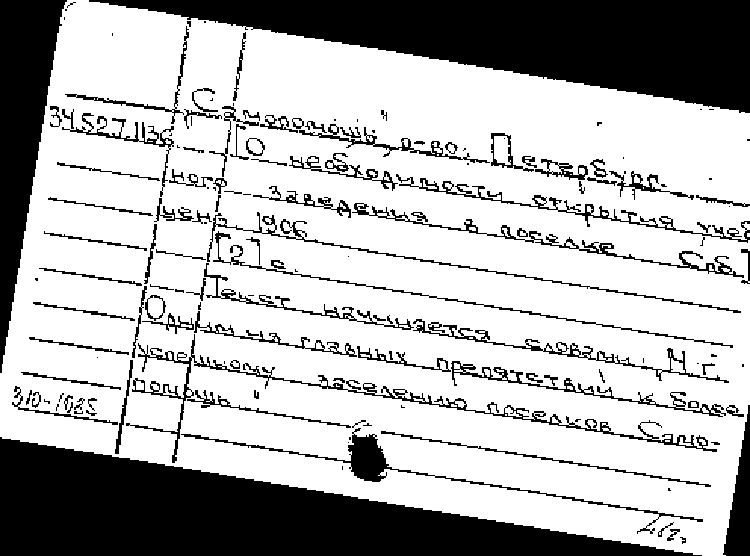 "Самопомощь", о-во. Петербург.
34.52.7.113б
[О необходимости открытия учеб
ного заведения в поселке. Спб.]
ценз 1906
[2] с.
Текст начинается словами: „М.г.
Одним из главных препятствий к более
успешному заселению поселков Само-
помощь"
310-1085